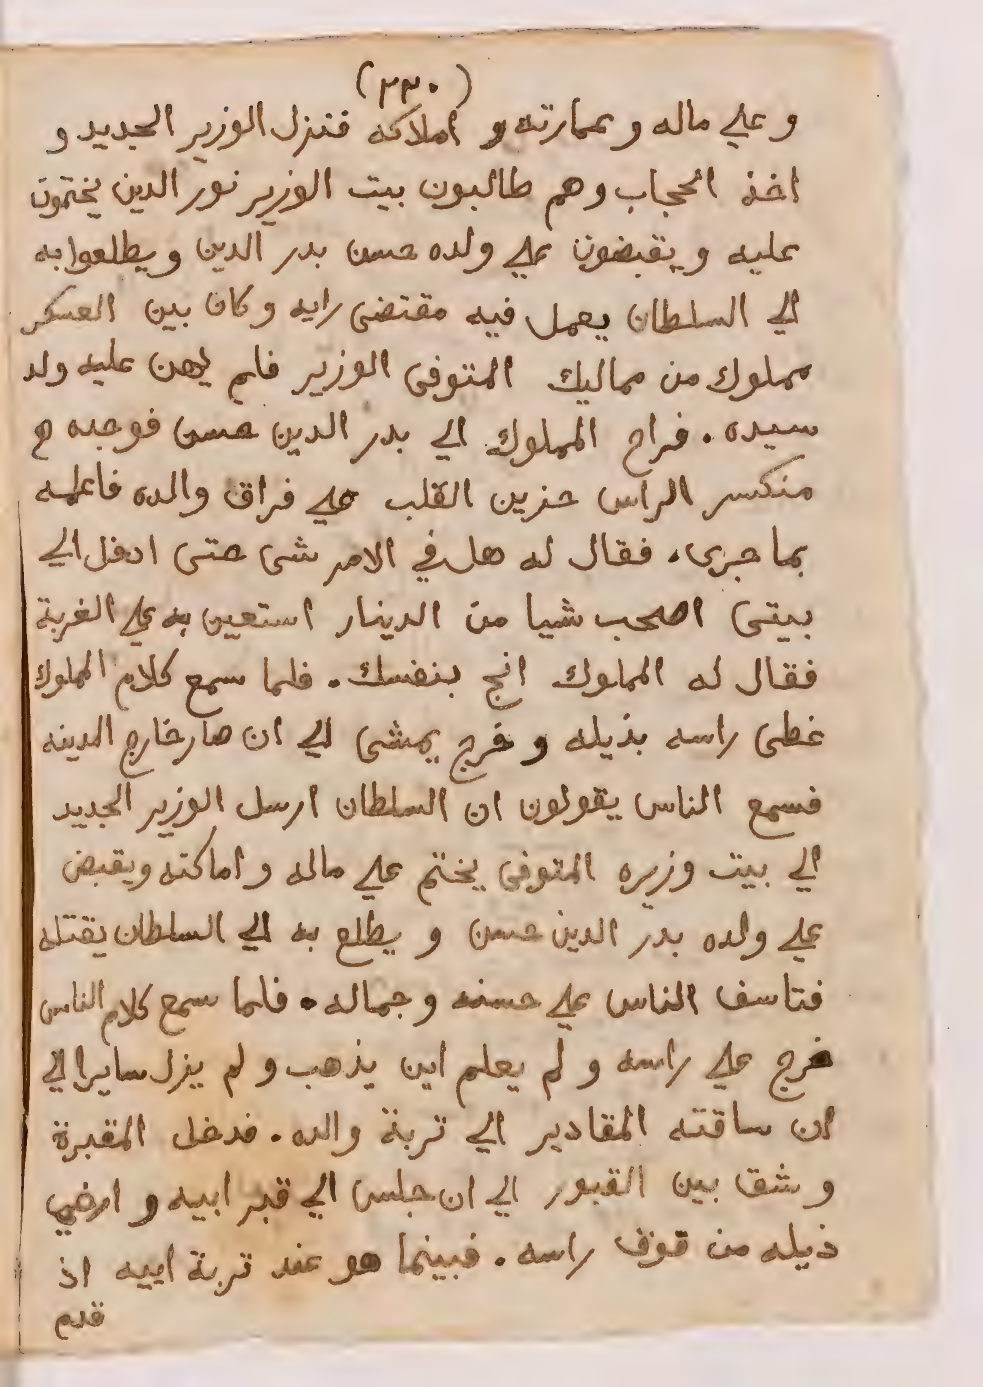 (٢٣٠)
و علي ماله و عمارته و املاكه فنزل الوزير الجديد و
اخذ الحجاب وهم طالبون بيت الوزير نور الدين يختمون
عليه و يقبضون علي ولده حسن بدر الدين و يطلعوا به
الي السلطان يعمل فيه مقتضى رايه و كان بين العسكر
مملوك من مماليك المتوفى الوزير فلم يهن عليه ولد
سيده . فراح المملوك الي بدر الدين حسن فوجده ح
منكسر الراس حزين القلب علي فراق والده فاعلمه
بما جرى . فقال له هل في الامر شى حتى ادخل الي
بيتى اصحب شيا من الدينار استعين به علي الغربة
فقال له المملوك انج بنفسك . فلما سمع كلام المملوك
غطى راسه بذيله و خرج يمشى الي ان صار خارج المدينه
فسمع الناس يقولون ان السلطان ارسل الوزير الجديد
الي بيت وزيره المتوفى يختم علي ماله و اماكنه ويقبض
علي ولده بدر الدين حسن و يطلع به الي السلطان يقتله
فتاسف الناس علي حسنه و جماله . فلما سمع كلام الناس
خرج علي راسه و لم يعلم اين يذهب و لم يزل سايرا الي
ان ساقته المقادير الي تربة والده . فدخل المقبرة
و شق بين القبور الي ان جلس الي قبر ابيه و ارخي
ذيله من فوق راسه . فبينما هو عند تربة ابيه اذ
قدم